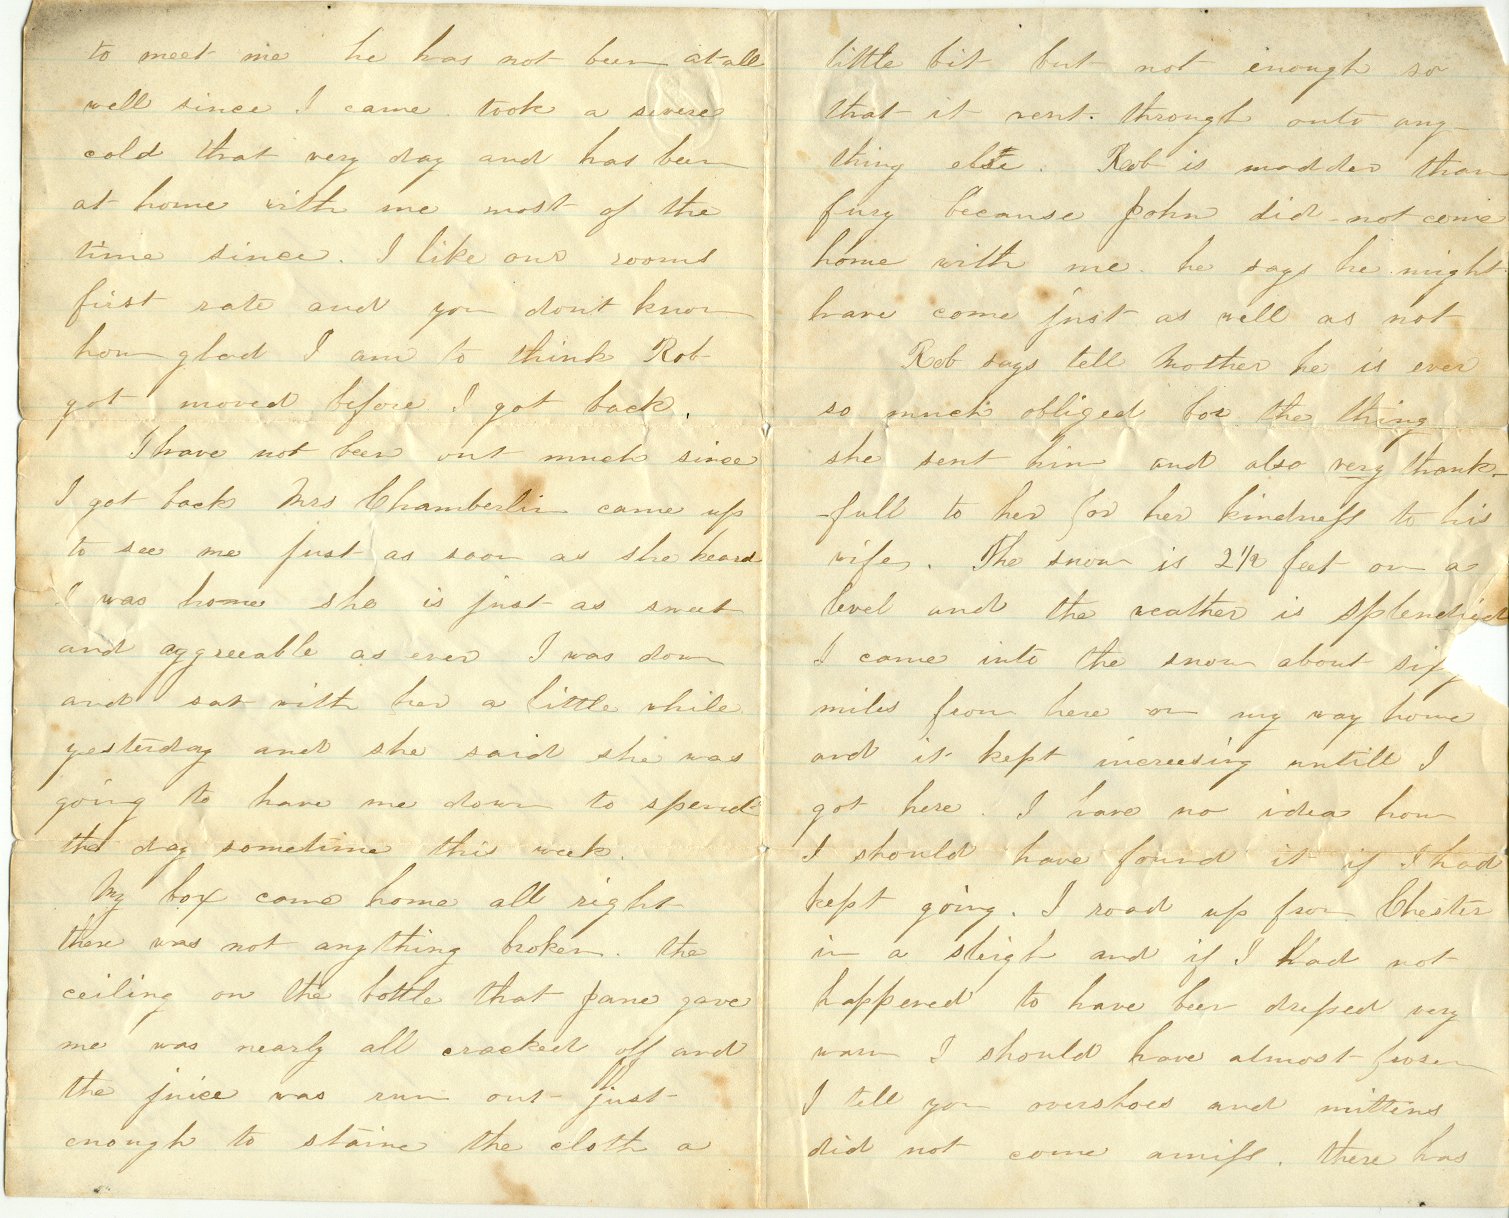 to meet me he has not been at all
well since I came. took a severe
cold that very day and has been
at home with me most of the
time since. I like our rooms
first rate and you dont know
how glad I am to think Rob
got moved before I got back.
I have not been out much since
I got back Mrs Chamberlin came up
to see me just as soon as she heard
I was home she is just as sweet
and aggreeable as ever I was down
and sat with her a little while
yesterday and she said she was
going to have me down to spend
the day sometime this week.
My box came home all right
there was not anything broken. the
ceiling on the bottle that Jane gave
me was nearly all cracked off and
the juice was run out just
enough to staine the cloth a
little bit but not enough so
that it went through onto any
thing else. Rob is madder than
fury because John did not come
home with me. he says he might
have come just as well as not
Rob says tell Mother he is ever
so much obliged for the thing
she sent him and also very thank-
-full to her for her kindness to his
wife. The snow is 2 1/2 feet on a
level and the weather is splendid
I came into the snow about six
miles from here on my way home
and it kept increesing untill I
got here. I have no idea how
I should have found it if I had
kept going. I road up from Chester
in a sleigh and if I had not
happened to have been dressed very
warm I should have almost frozen
I tell you overshoes and mittens
did not come amiss. there has